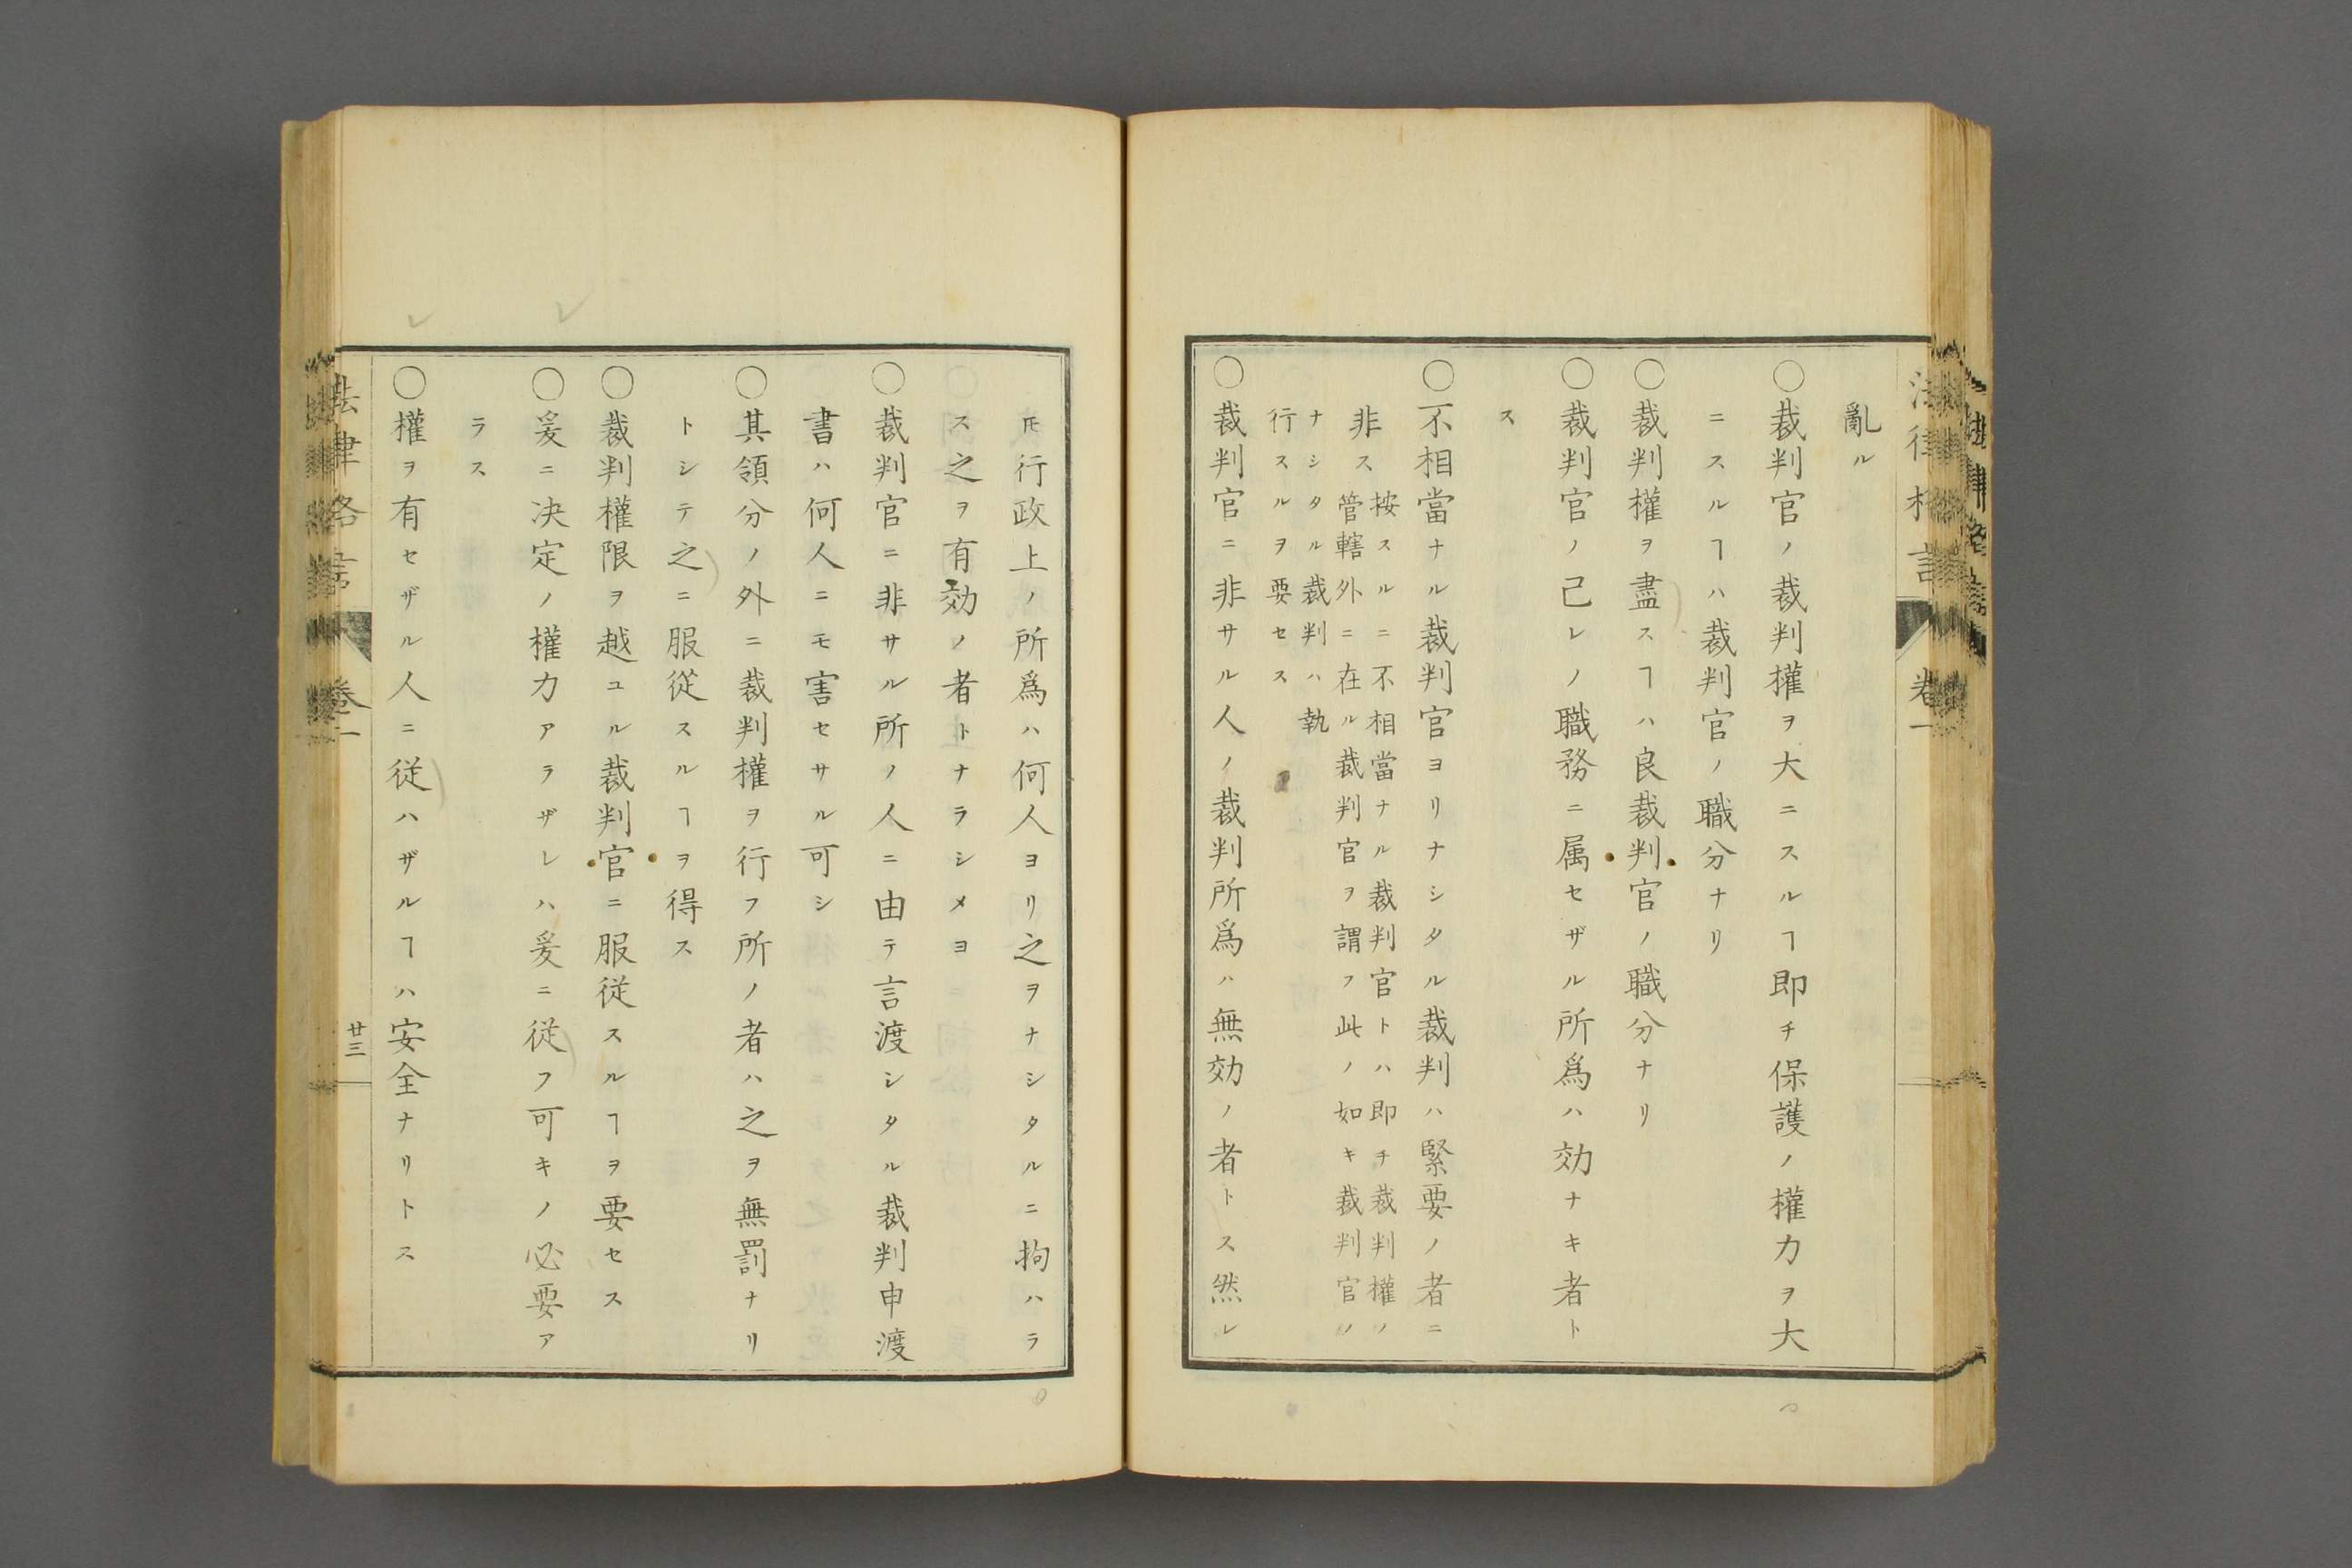 亂ル
○裁判官ノ裁判權ヲ大ニスルヿ即チ保護ノ權力ヲ大
ニスルヿハ裁判官ノ職分ナリ
○裁判權ヲ盡スヿハ良裁判官ノ職分ナリ
○裁判官ノ己レノ職務ニ属セザル所爲ハ効ナキ者ト
ス
○不相當ナル裁判官ヨリナシタル裁判ハ緊要ノ者ニ
非ス
按スルニ不相當ナル裁判官トハ即チ裁判權ノ
管轄外ニ在ル裁判官ヲ謂フ此ノ如キ裁判官ノ
ナシタル裁判ハ執
行スルヲ要セス
○裁判官ニ非サル人ノ裁判所爲ハ無効ノ者トス然レ
𪜈行政上ノ所爲ハ何人ヨリ之ヲナシタルニ拘ハラ
ス之ヲ有効ノ者トナラシメヨ
○裁判官ニ非サル所ノ人ニ由テ言渡シタル裁判申渡
書ハ何人ニモ害セサル可シ
○其領分ノ外ニ裁判權ヲ行フ所ノ者ハ之ヲ無罰ナリ
トシテ之ニ服從スルヿヲ得ス
○裁判權限ヲ越ユル裁判官ニ服從スルヿヲ要セス
○爰ニ决定ノ權力アラザレハ爰ニ從フ可キノ必要ア
ラス
○權ヲ有セザル人ニ從ハザルヿハ安全ナリトス
法律格言
卷一
廿三